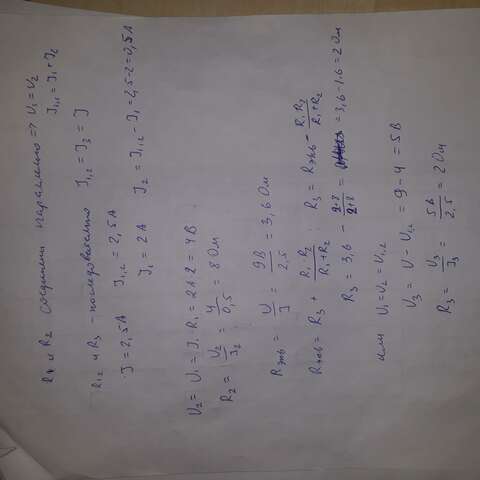 R₁ и R₂ соединены параллельно => U₁ = U₂
J₁,₂ = J₁ + J₂
R₁₂ и R₃ - последовательно J₁,₂ = J₃ = J
J = 2,5A J₁,₂ = 2,5A
J₁ = 2A J₂ = J₁,₂ - J₁ = 2,5 - 2 = 0,5A
U₂ = U₁ = J₁ · R₁ = 2A · 2 = 4B
R₂ = U₂/J₂ = 4/0,5 = 8 Ом
Rэкв = U/J = 9B/2,5 = 3,6 Ом
Rэкв = R₃ + R₁·R₂/R₁+R₂ ; R₃ = Rэкв - R₁·R₂/R₁+R₂
R₃ = 3,6 - 2·8/2+8 = = 3,6 - 1,6 = 2 Ом
или U₁ = U₂ = U₁,₂
U₃ = U - U₁,₂ = 9 - 4 = 5B
R₃ = U₃/J₃ = 5B/2,5 = 2 Ом